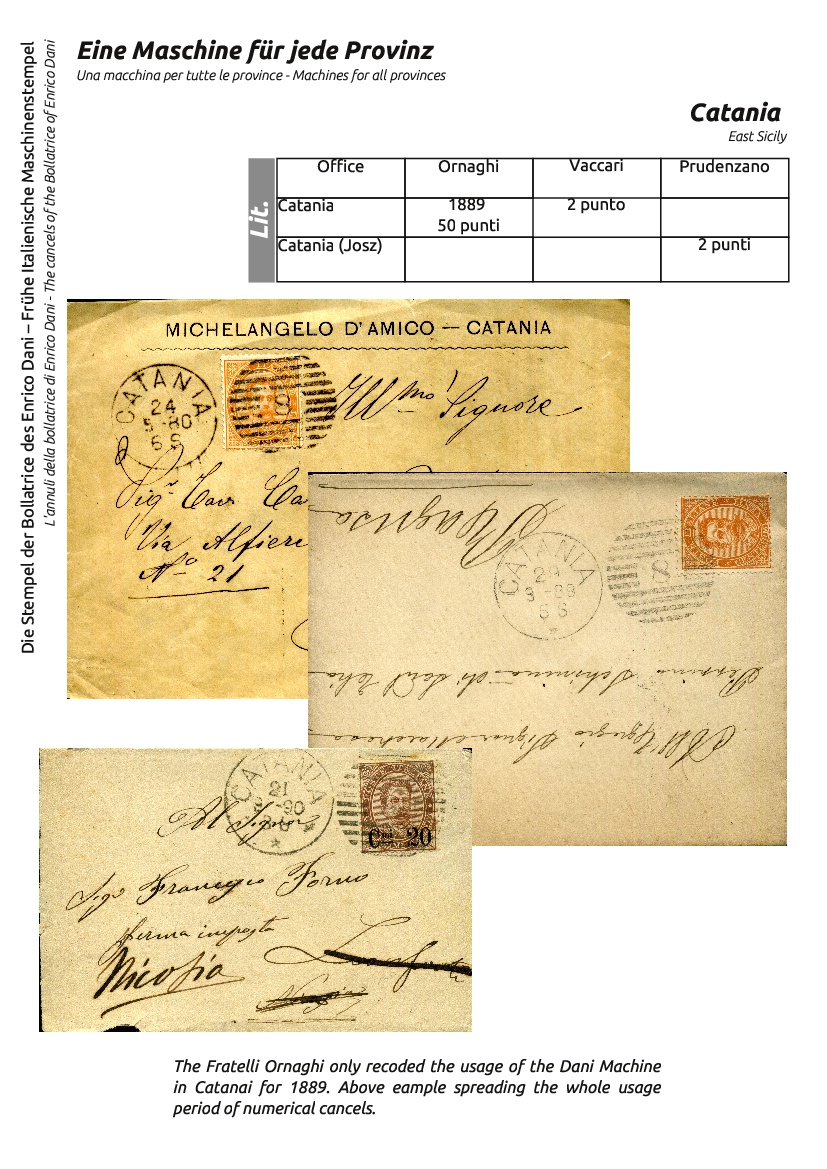 Eine Maschine für jede Provinz
Una macchina per tutte le province - Machines for all provinces
Die Stempel der Bollatrice des Enrico Dani – Frühe Italienische Maschinenstempel
L'annuli della bollatrice di Enrico Dani - The cancels of the Bollatrice of Enrico Dani
Catania
East Sicily
Lit.
Office Ornaghi Vaccari Prudenzano
Catania 1889 2 punto
50 punti
Catania (Josz) 2 punti
MICHELANGELO D'AMICO — CATANIA
CATANIA
24
5 -80
6 S
8
Ill.mo Signore
Sigr Cav. Ca
Via Alfieri
No 21
CATANIA
29
3 -89
6 S
8
CATANIA
21
-90
Al Signor
Sigr Francesco Forno
ferma in posta
Nicosia
Cmi 20
The Fratelli Ornaghi only recoded the usage of the Dani Machine
in Catanai for 1889. Above eample spreading the whole usage
period of numerical cancels.